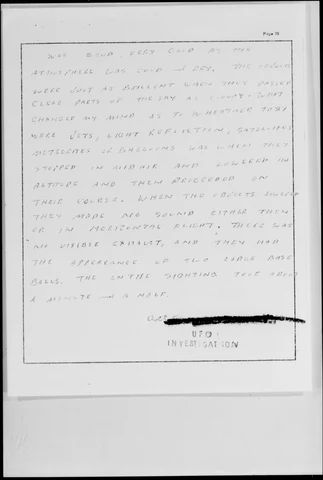 Page
WAS
VERY COLD AS THE
ATMOSPHERE WAS COLD AND DRY. THE OBJECTS
WERE JUST AS BRILLENT WHEN THEY PASSED
CLEAR PARTS OF THE SKY AS
CHANGED MY MIND AS TO WHEATHER THEY
WERE JETS, LIGHT REFLECTION, SATELLITES
METEORES OR BALLOONS WAS WHEN THEY
STOPPED IN MIDAIR AND LOWERED IN
ALTITUDE AND THEN PROCEEDED ON
THEIR COURSE. WHEN THE OBJECTS
THEY MADE NO SOUND EITHER THEN
OR IN HORIZONTAL FLIGHT. THERE WAS
NO VISIBLE EXHAUST, AND THEY HAD
THE APPEARENCE OF TWO LARGE BASE
BALLS. THE ENTIRE SIGHTING TOOK ABOUT
A MINUTE AND A HALF.
UFO
INVESTIGATION